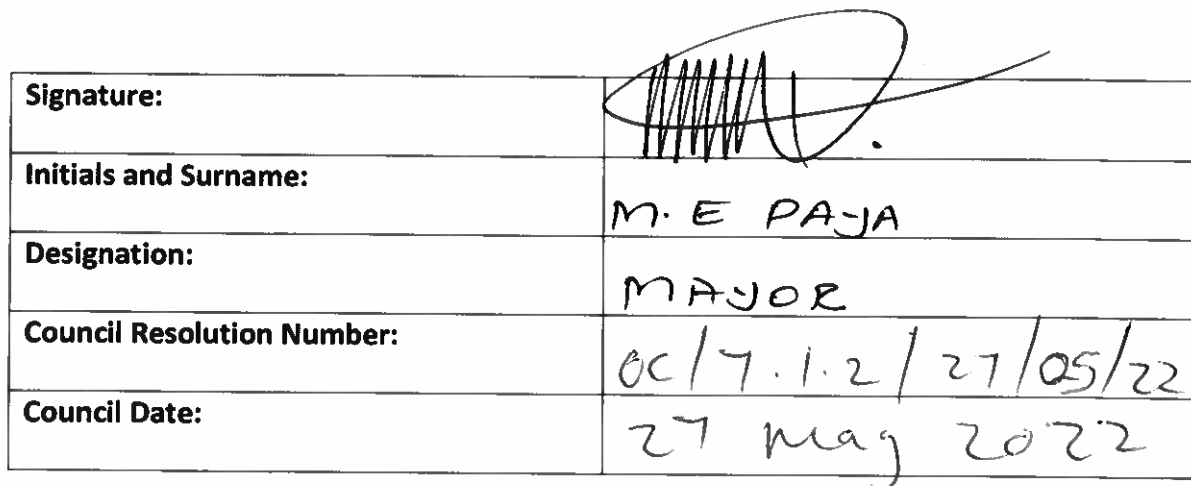 Signature:
Initials and Surname: M.E PAYA
Designation: MAYOR
Council Resolution Number: OC/7.1.2/27/05/22
Council Date: 27 May 2022